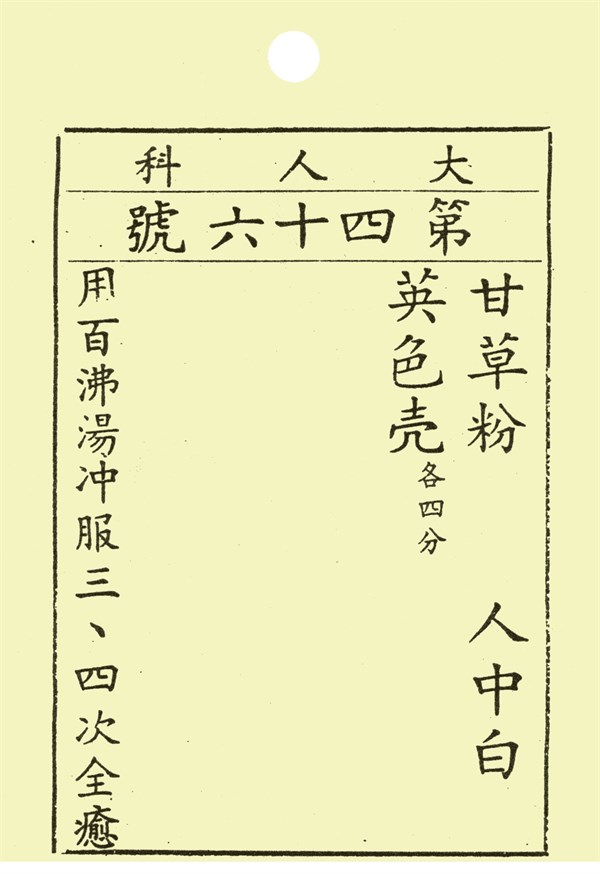 大人科
第四十六號
甘草粉　人中白
英色壳各四分
用百沸湯冲服三、四次全癒